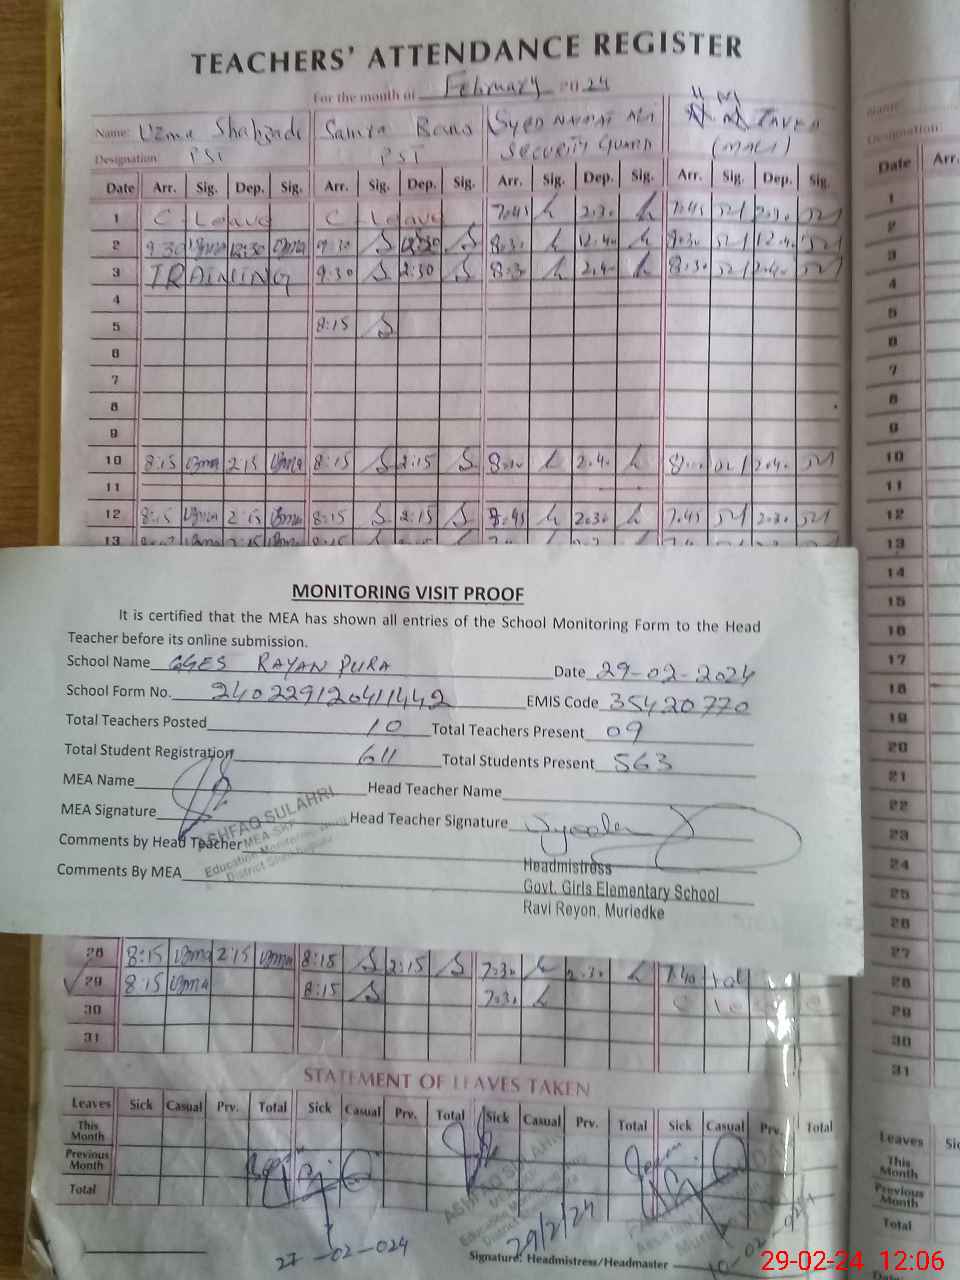 TEACHERS' ATTENDANCE REGISTER
For the month of February 2024
Name: Uzma Shahzadi Samra Bano SYED ALI
Designation PST PST SECURITY GUARD (MALI)
Date Arr. Sig. Dep. Sig. Arr. Sig. Dep. Sig. Arr. Sig. Dep. Sig. Arr. Sig. Dep. Sig.
1 C Leave C Leave 7.45 2.30 7.45 2.30
2 9:30 Uzma 12:30 Uzma 9:30 S 12:30 S 8.30 12.40 8.30 12.40
3 TRAINING 9:30 S 2:30 S 8.30 2.40 8.30 2.40
4
5 8:15 S
6
7
8
9
10 8:15 Uzma 2:15 Uzma 8:15 S 2:15 S 2.40 2.40
11
12 8:15 Uzma 2:15 Uzma 8:15 S 2:15 S 7.45 2.30 7.45 2.30
13
MONITORING VISIT PROOF
It is certified that the MEA has shown all entries of the School Monitoring Form to the Head
Teacher before its online submission.
School Name GGES RAYAN PURA Date 29-02-2024
School Form No. 240229120411442 EMIS Code 35420770
Total Teachers Posted 10 Total Teachers Present 09
Total Student Registration 611 Total Students Present 563
MEA Name Head Teacher Name
MEA Signature Head Teacher Signature
ASHFAQ SULAHRI
Comments by Head Teacher
Comments By MEA
Headmistress
Govt. Girls Elementary School
Ravi Reyon, Muriedke
28 8:15 Uzma 2:15 Uzma 8:15 S 2:15 S 7.30 2.30 7.40
29 8:15 Uzma 8:15 S 7.30 C Leave
30
31
STATEMENT OF LEAVES TAKEN
Leaves Sick Casual Prv. Total Sick Casual Prv. Total Sick Casual Prv. Total Sick Casual Prv. Total
This
Month
Previous
Month
Total
ASHFAQ SULAHRI
27-02-024
29/2/24
Signature: Headmistress/Headmaster
Name:
Designation:
Date Arr.
1
2
3
4
5
6
7
8
9
10
11
12
13
14
15
16
17
18
19
20
21
22
23
24
25
26
27
28
29
30
31
Leaves
This
Month
Previous
Month
Total
29-02-24 12:06